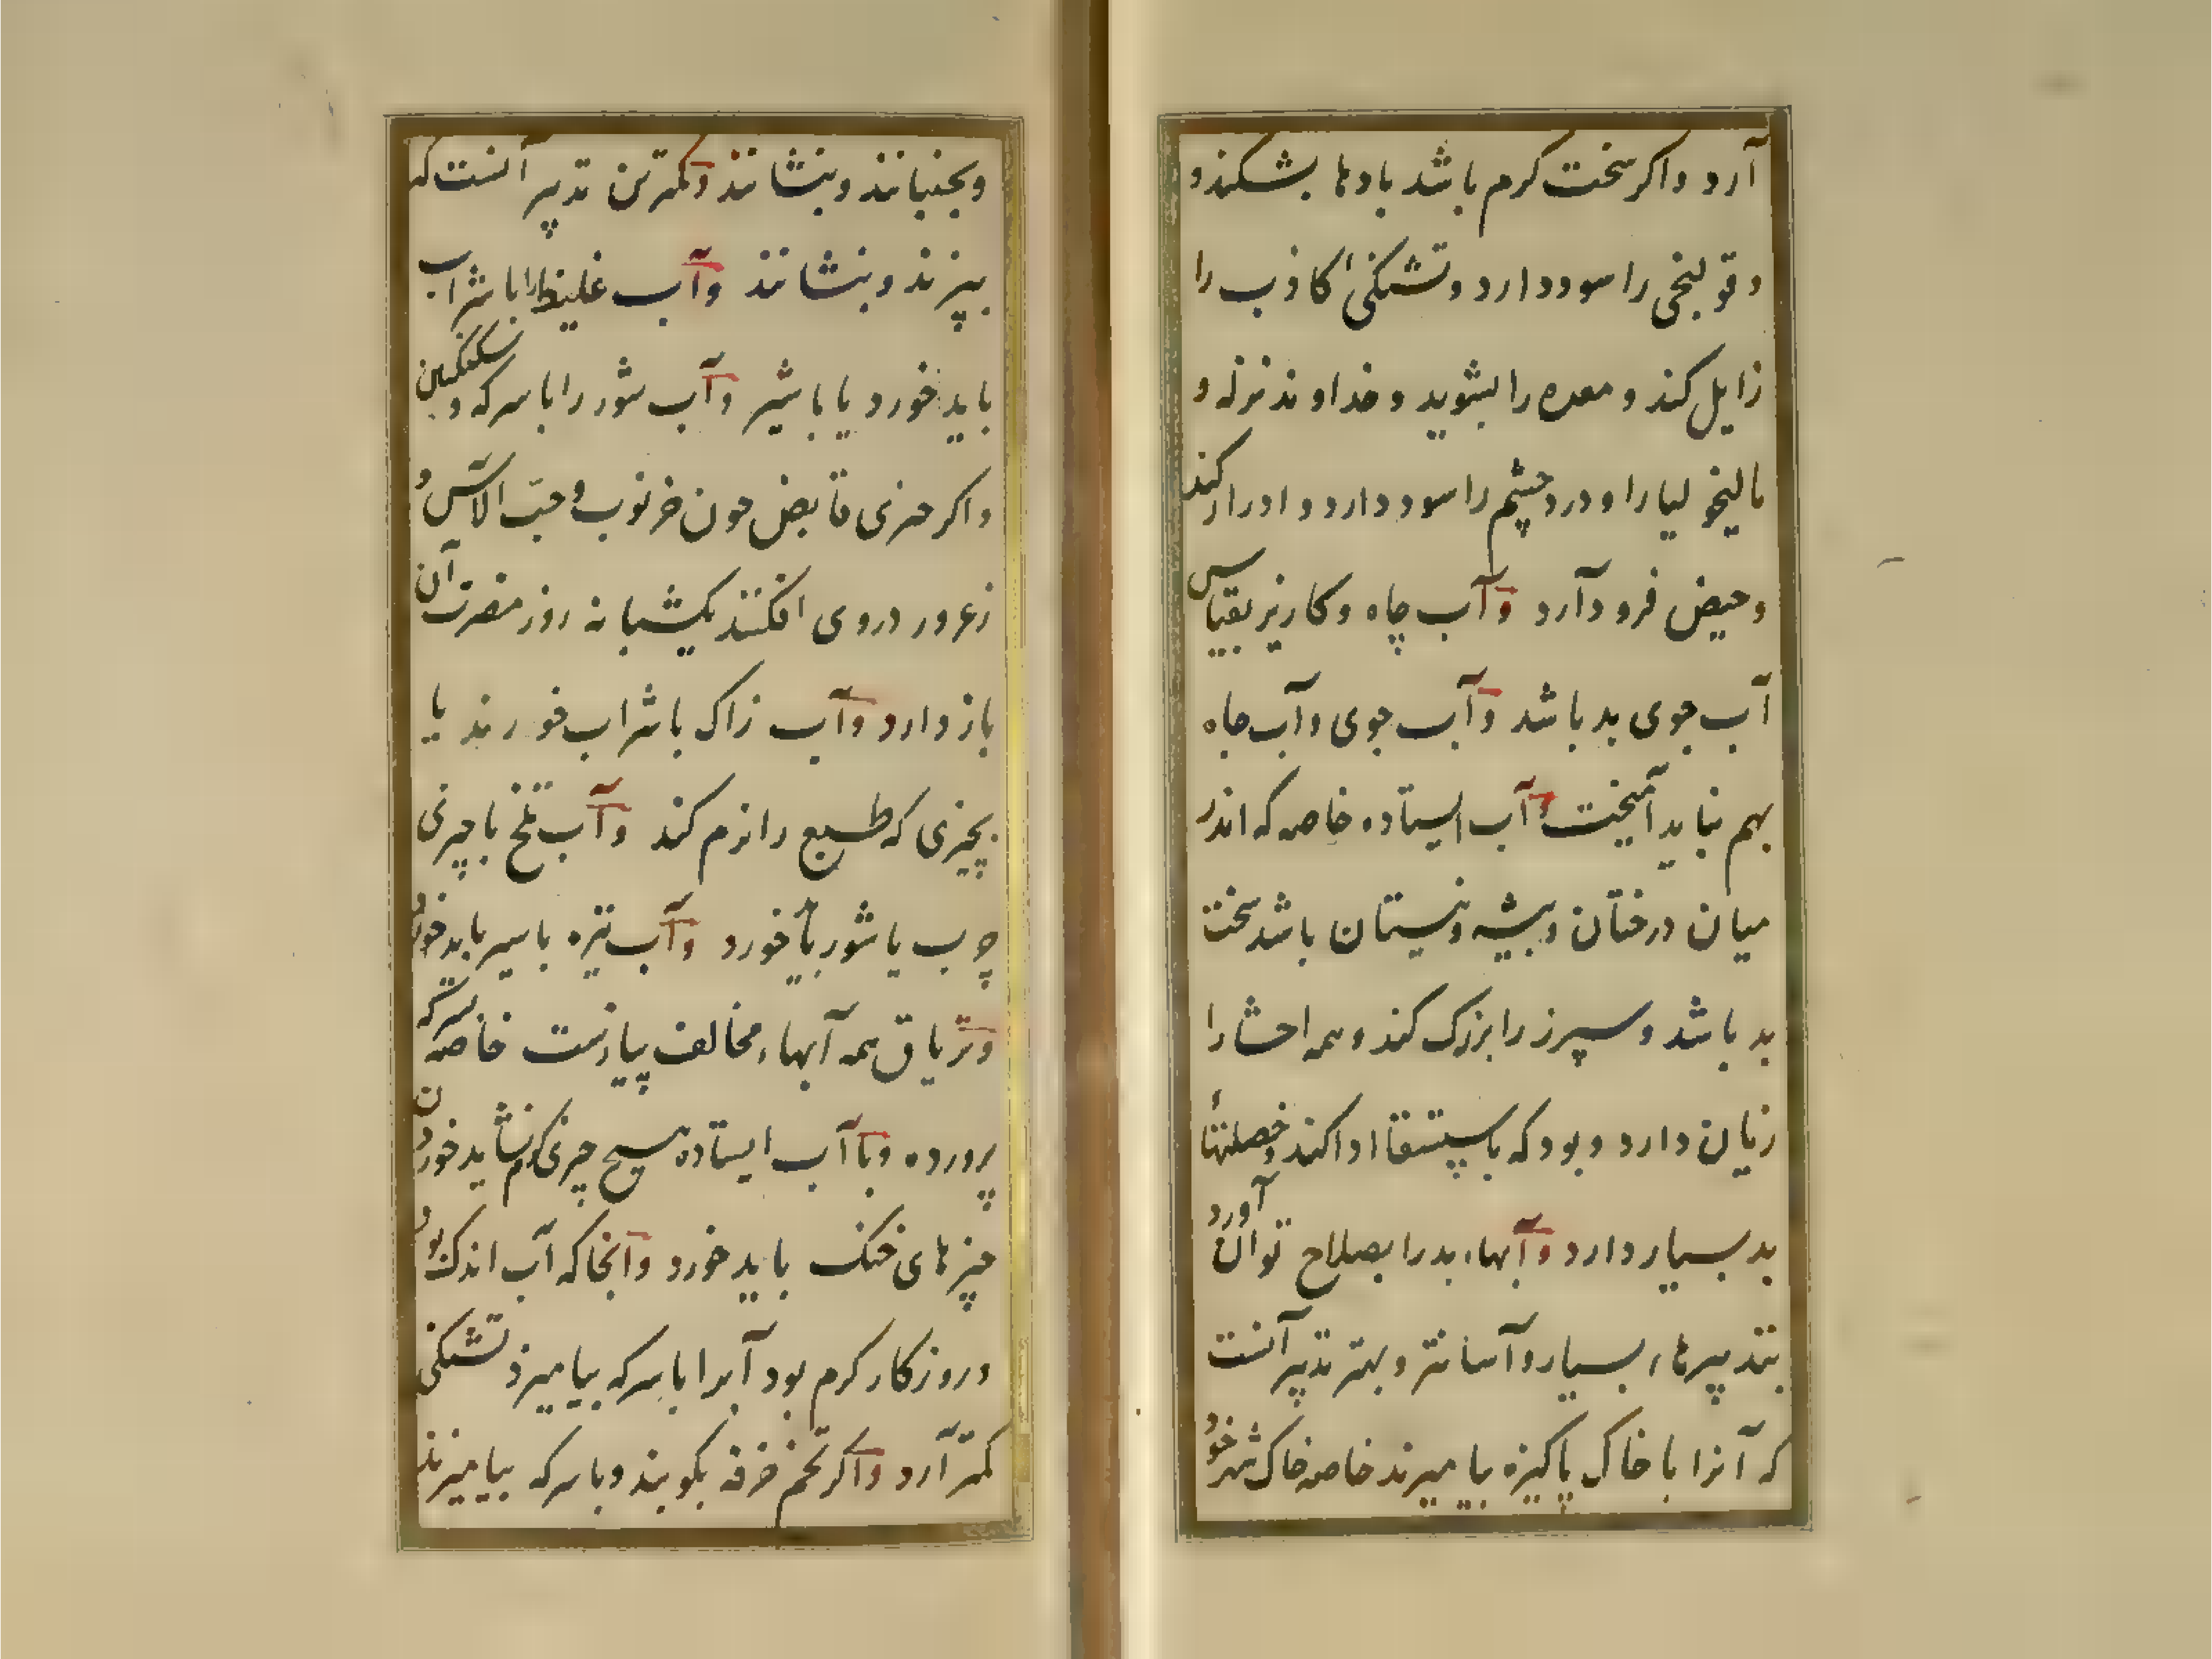 آرد واکر سخت کرم باشد بادها بشکند و
و قولنجی را سود دارد و تشنکیٔ کاذب را
زایل کند و معده را بشوید و خداوند نزله و
مالیخولیا را و درد چشم را سود دارد و ادرار کند
و حیض فرود آرد و آب چاه و کاریز بقیاس
آب جوی بد باشد و آب جوی و آب چاه
بهم نباید آمیخت و آب ایستاده خاصه که اندر
میان درختان و بیشه و نیستان باشد سخت
بد باشد و سپرز را بزرک کند و همه احشا را
زیان دارد و بود که باستسقا ادا کند و خصلتهاء
بد بسیار دارد و آبهاء بد را بصلاح توان آورد
بتدبیرهاء بسیار و آسانتر و بهتر تدبیر آنست
که آنرا با خاک پاکیزه بیامیزند خاصه خاک شهر خود
و بجنبانند و بنشانند و کمترین تدبیر آنست که
بپزند و بنشانند و آب غلیظ را با شراب
باید خورد یا با شیر و آب شور را با سرکه و سکنکبین
و اکر چیزی قابض چون خرنوب و حب الآس و
زعرور در وی افکنند یکشبانه روز مضرت آن
باز دارد و آب زاک با شراب خورند یا
بچیزی که طبع را نرم کند و آب تلخ با چیزی
چرب یا شوربا خورد و آب تیره با سیر باید خورد
و تریاق همه آبهاء مخالف پیازست خاصه بسرکه
پرورده و با آب ایستاده هیچ چیزی کرم نشاید خوردن
چیزهای خنک باید خورد و آنجا که آب اندک بود
و روزکار کرم بود آبرا با سرکه بیامیزد تشنکی
کمتر آرد و اکر تخم خرفه بکوبند و با سرکه بیامیزند